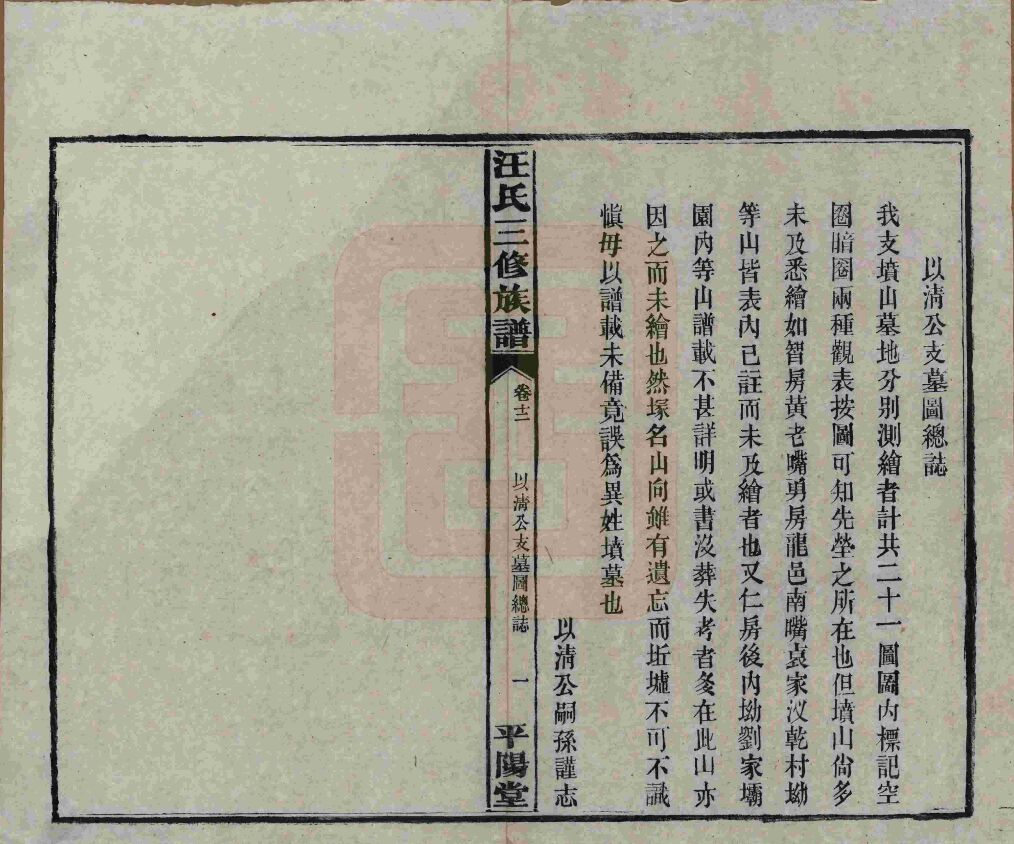 以清公支墓圖總誌
我支墳山墓地分別測繪者計共二十一圖圖內標記空
圈暗圈兩種觀表按圖可知先塋之所在也但墳山尙多
未及悉繪如智房黃老嘴勇房龍邑南嘴袁家汊乾村坳
等山皆表內已註而未及繪者也又仁房後內坳劉家壩
園內等山譜載不甚詳明或書沒葬失考者多在此山亦
因之而未繪也然塚名山向雖有遺忘而坵墟不可不識
愼毋以譜載未備竟誤爲異姓墳墓也
以清公嗣孫謹志
汪氏三修族譜
卷十二
以清公支墓圖總誌
一
平陽堂